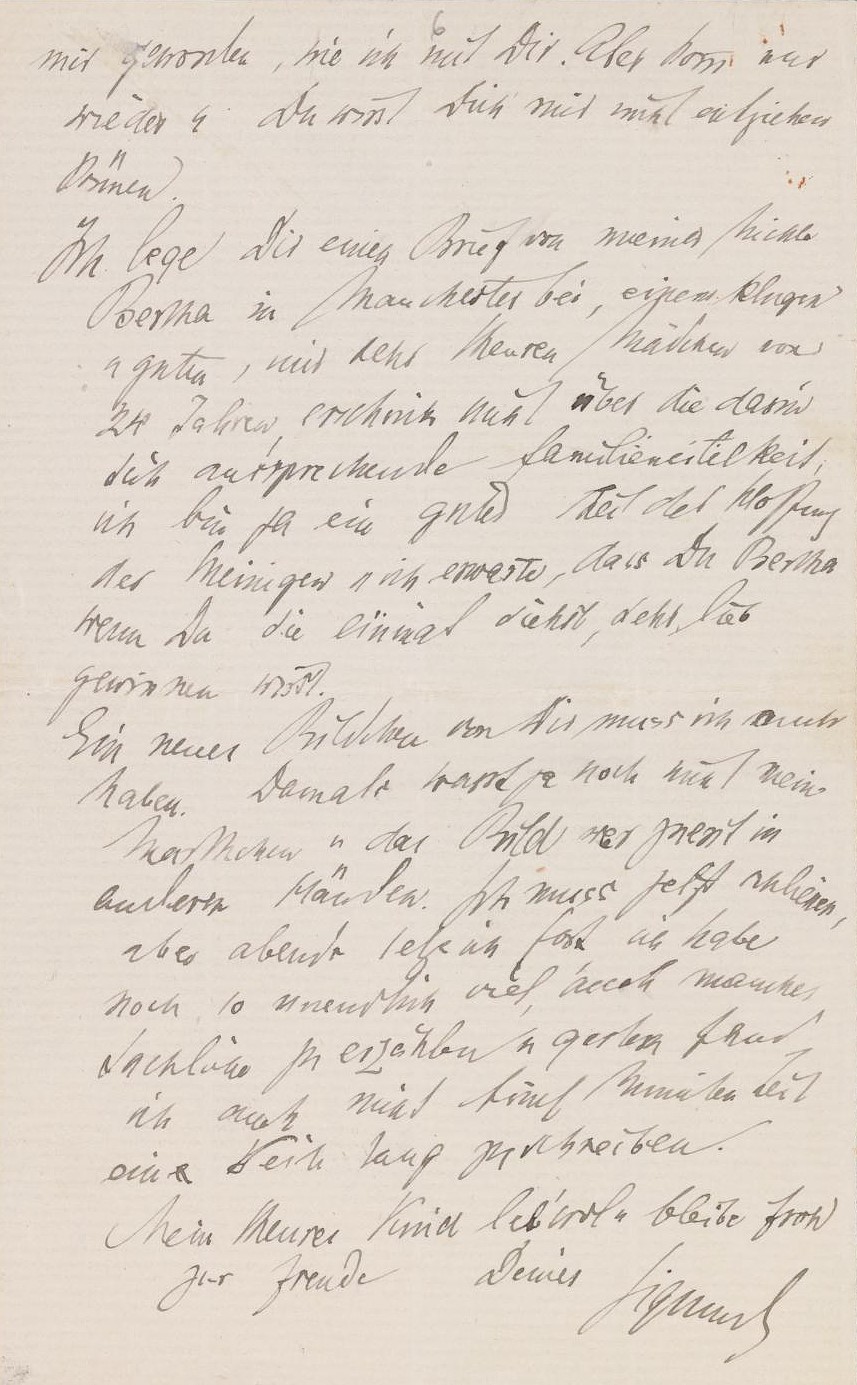 6
mir geworden, wie ich mit Dir. Aber komm nur
wieder u Du wirst Dich mir nicht entziehen
können.
Ich lege Dir einen Brief von meiner Nichte
Bertha in Manchester bei, einem klugen
u guten, mir sehr theuren Mädchen von
24 Jahren, erschrick nicht über die darin
sich aussprechende Familieneitelkeit,
ich bin ja ein gutes Teil der Hoffnung
der Meinigen u ich erwarte, dass Du Bertha
wenn Du sie einmal siehst, sehr lieb
gewinnen wirst.
Ein neues Bildchen von Dir muss ich auch
haben. Damals warst ja noch nicht mein
Marthchen u das Bild war zuerst in
anderen Händen. Ich muss jetzt schließen,
aber abends setze ich fort ich habe
noch so unendlich viel, auch manches
Sachliche zu erzählen u gestern fand
ich auch nicht fünf Minuten Zeit
eine Zeile lang zu schreiben.
Mein theures Kind leb' wol u bleibe froh
zur Freude Deines Sigmund